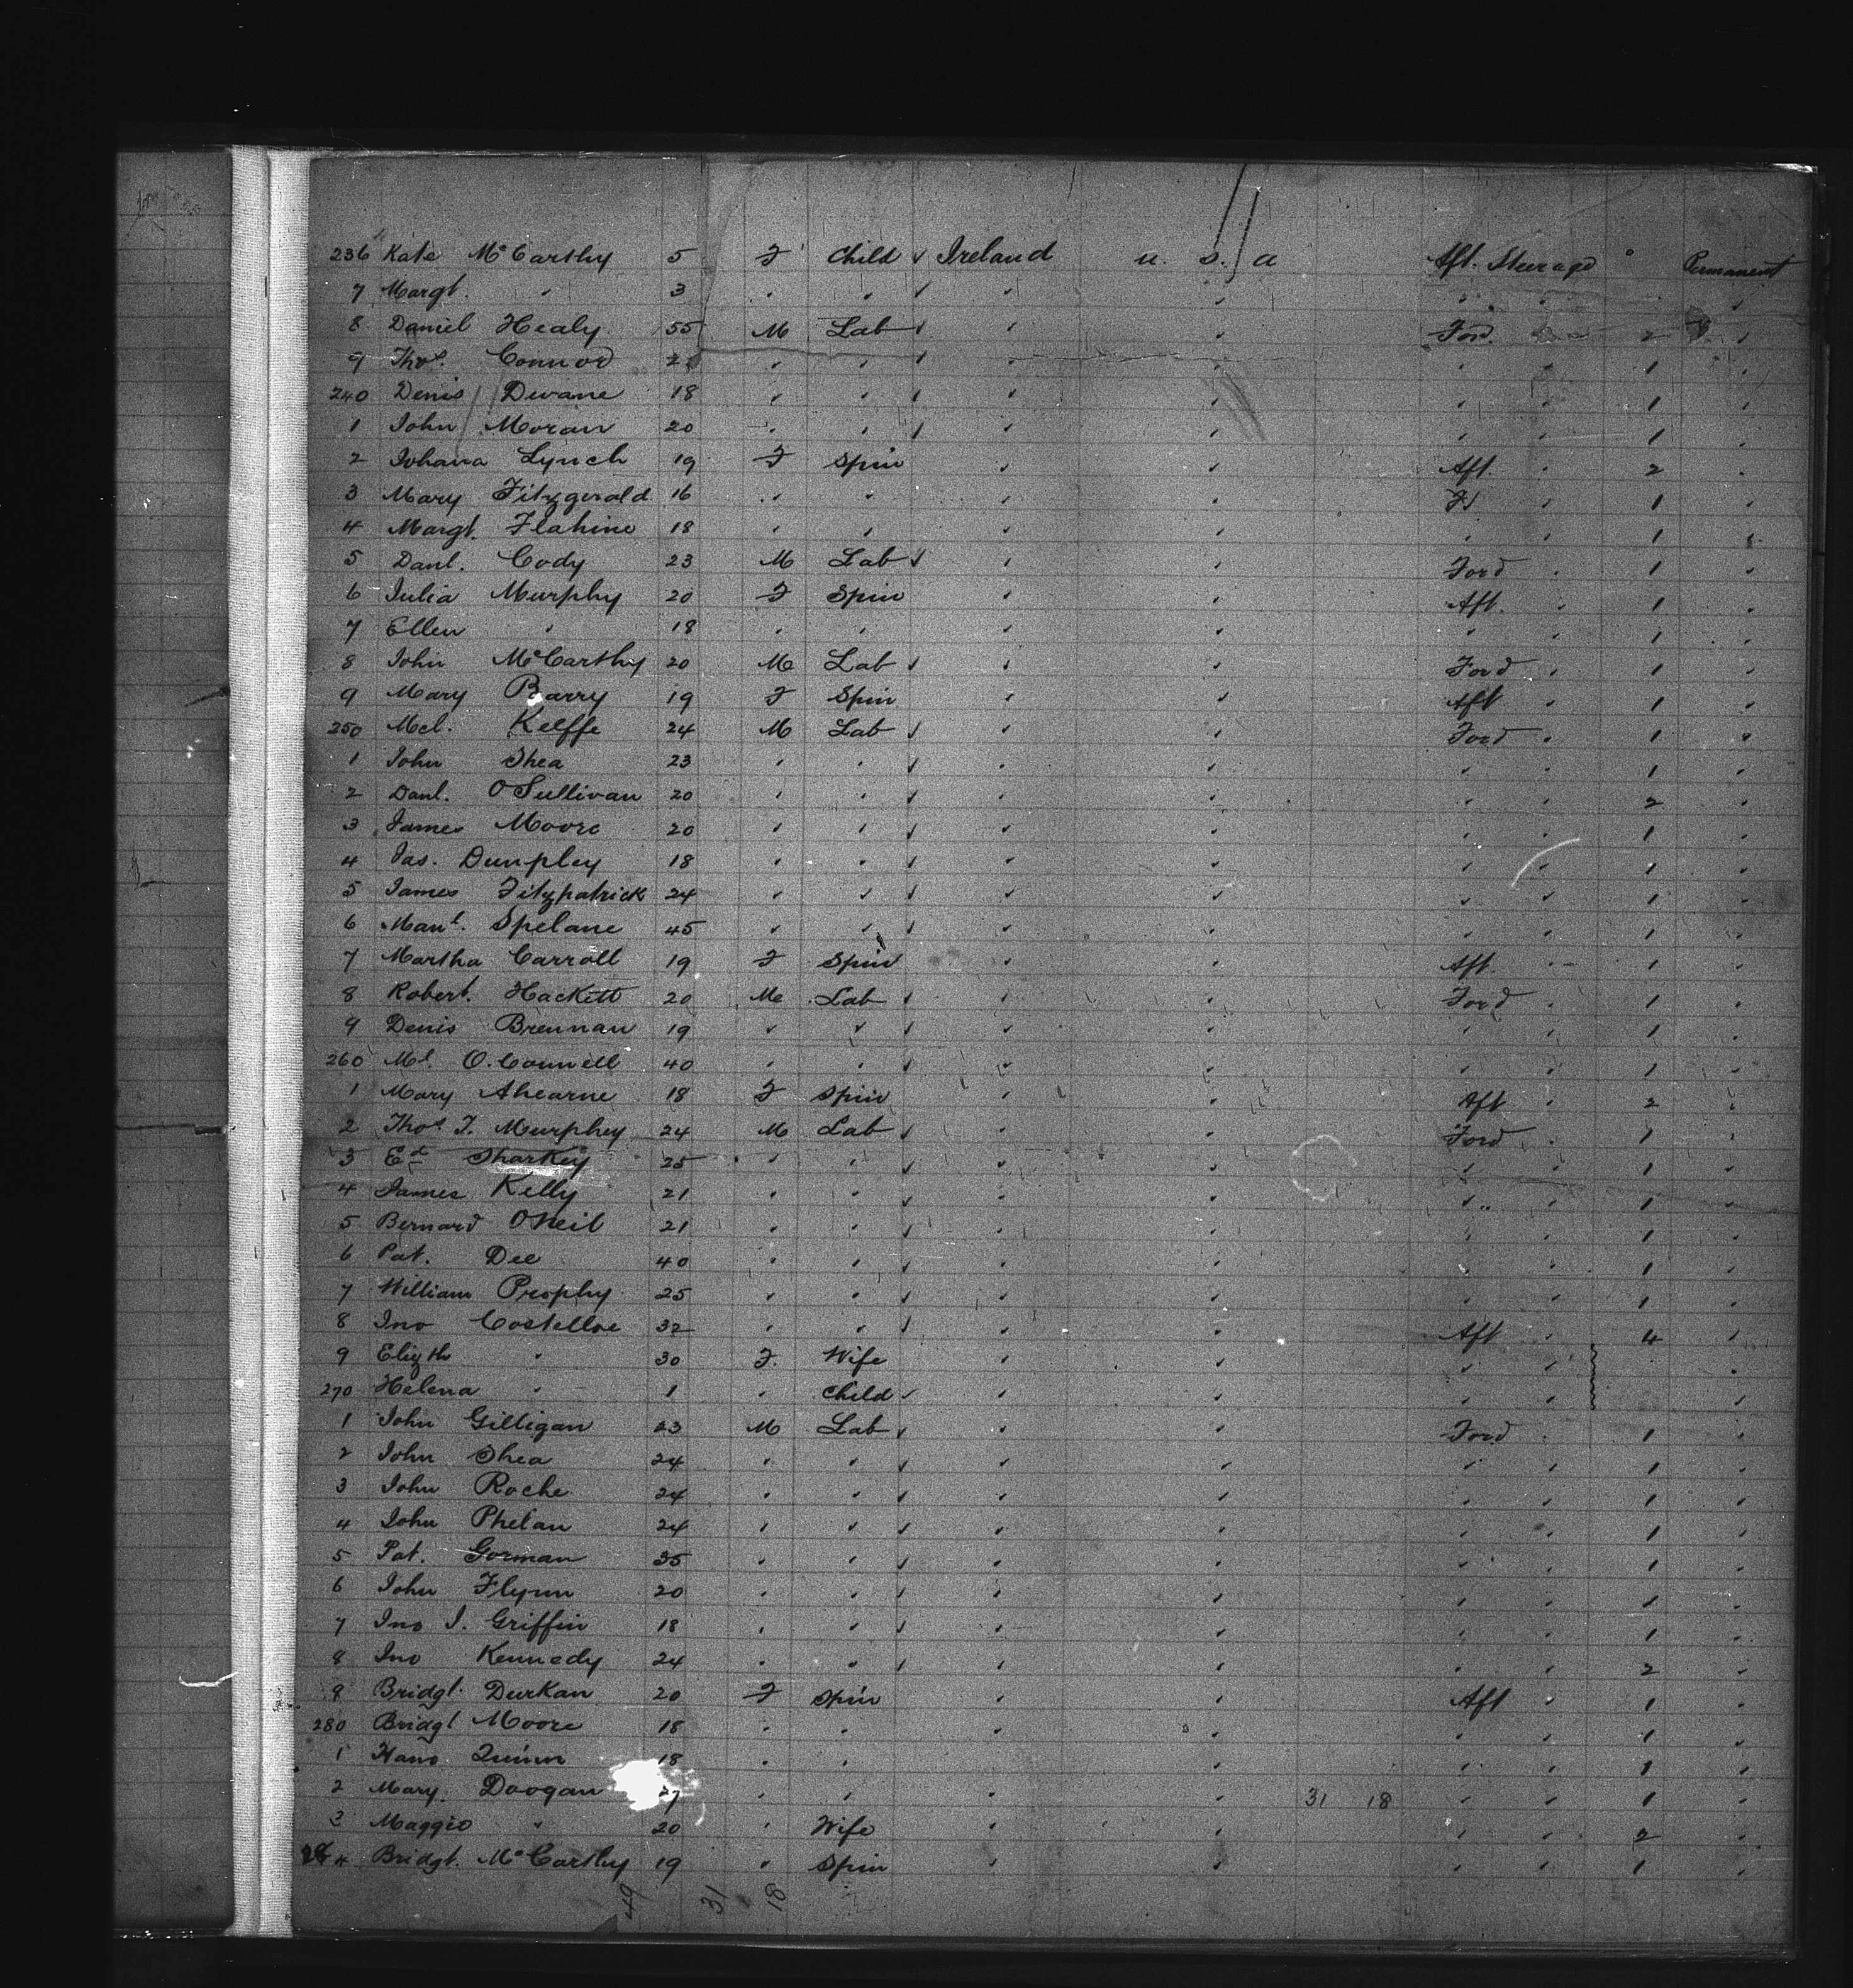 236 Kate McCarthy 5 F Child ✓ Ireland U. S. A Aft. Steerage " Permanent
7 Margt. " 3 " " ✓ " " " " "
8 Daniel Healy 55 M Lab ✓ " " Ford. 2 "
9 Thos. Connor " " ✓ " " " " 1 "
240 Denis Dwane 18 " " ✓ " " " " 1 "
1 John Moran 20 " " ✓ " " " " 1 "
2 Johana Lynch 19 F Spin " " Aft. " 2 "
3 Mary Fitzgerald 16 " " " " " 1 "
4 Margt. Flahine 18 " " " " " " 1 "
5 Danl. Cody 23 M Lab ✓ " " Ford " 1 "
6 Julia Murphy 20 F Spin " " Aft. " 1 "
7 Ellen " 18 " " " " " " 1 "
8 John McCarthy 20 M Lab ✓ " " Ford " 1 "
9 Mary Barry 19 F Spin " " Aft " 1 "
250 Mcl. Keeffe 24 M Lab ✓ " " Ford " 1 "
1 John Shea 23 " " ✓ " " " " 1 "
2 Danl. O'Sullivan 20 " " ✓ " " " " 2 "
3 James Moore 20 " " ✓ " " " " 1 "
4 Jas. Dunpley 18 " " ✓ " " " " 1 "
5 James Fitzpatrick 24 " " ✓ " " " " 1 "
6 Mant. Spelane 45 " " ✓ " " " " 1 "
7 Martha Carroll 19 F Spin " " Aft. " 1 "
8 Robert. Hackett 20 M Lab ✓ " " Ford " 1 "
9 Denis Brennan 19 " " ✓ " " " " 1 "
260 Ml. O.Connell 40 " " ✓ " " " " 1 "
1 Mary Ahearne 18 F Spin " " Aft " 2 "
2 Thos J. Murphey 24 M Lab ✓ " " Ford " 1 "
3 Ed Sharkey 25 " " ✓ " " " " 1 "
4 James Kelly 21 " " ✓ " " " " 1 "
5 Bernard ONeil 21 " " ✓ " " " " 1 "
6 Pat. Dee 40 " " ✓ " " " " 1 "
7 William Prophy 25 " " ✓ " " " " 1 "
8 Jno Costelloe 32 " " ✓ " " Aft " 4 "
9 Elizth " 30 F. Wife " " " " "
270 Helena " 1 " Child ✓ " " " " "
1 John Gilligan 23 M Lab ✓ " " Ford " 1 "
2 John Shea 24 " " ✓ " " " " 1 "
3 John Roche 24 " " ✓ " " " " 1 "
4 John Phelan 24 " " ✓ " " " " 1 "
5 Pat. Gorman 35 " " ✓ " " " " 1 "
6 John Flynn 20 " " ✓ " " " " 1 "
7 Jno J. Griffin 18 " " ✓ " " " " 1 "
8 Jno Kennedy 24 " " ✓ " " " " 2 "
9 Bridgt. Durkan 20 F Spin " " Aft " 1 "
280 Bridgt Moore 18 " " " " " " 1 "
1 Hano Quinn 18 " " " " " 1 "
2 Mary. Doogan 27 " " " " 31 18 " " 1 "
3 Maggie " 20 " Wife " " " " 2 "
284 Bridgt. McCarthy 19 " Spin " " " " 1 "
49 31 18